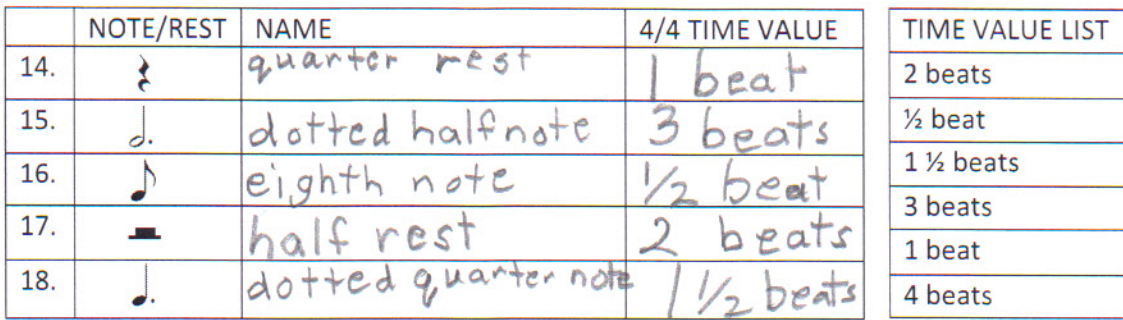 NOTE/REST NAME 4/4 TIME VALUE
14. quarter rest 1 beat
15. dotted half note 3 beats
16. eighth note 1/2 beat
17. half rest 2 beats
18. dotted quarter note 1 1/2 beats
TIME VALUE LIST
2 beats
½ beat
1 ½ beats
3 beats
1 beat
4 beats